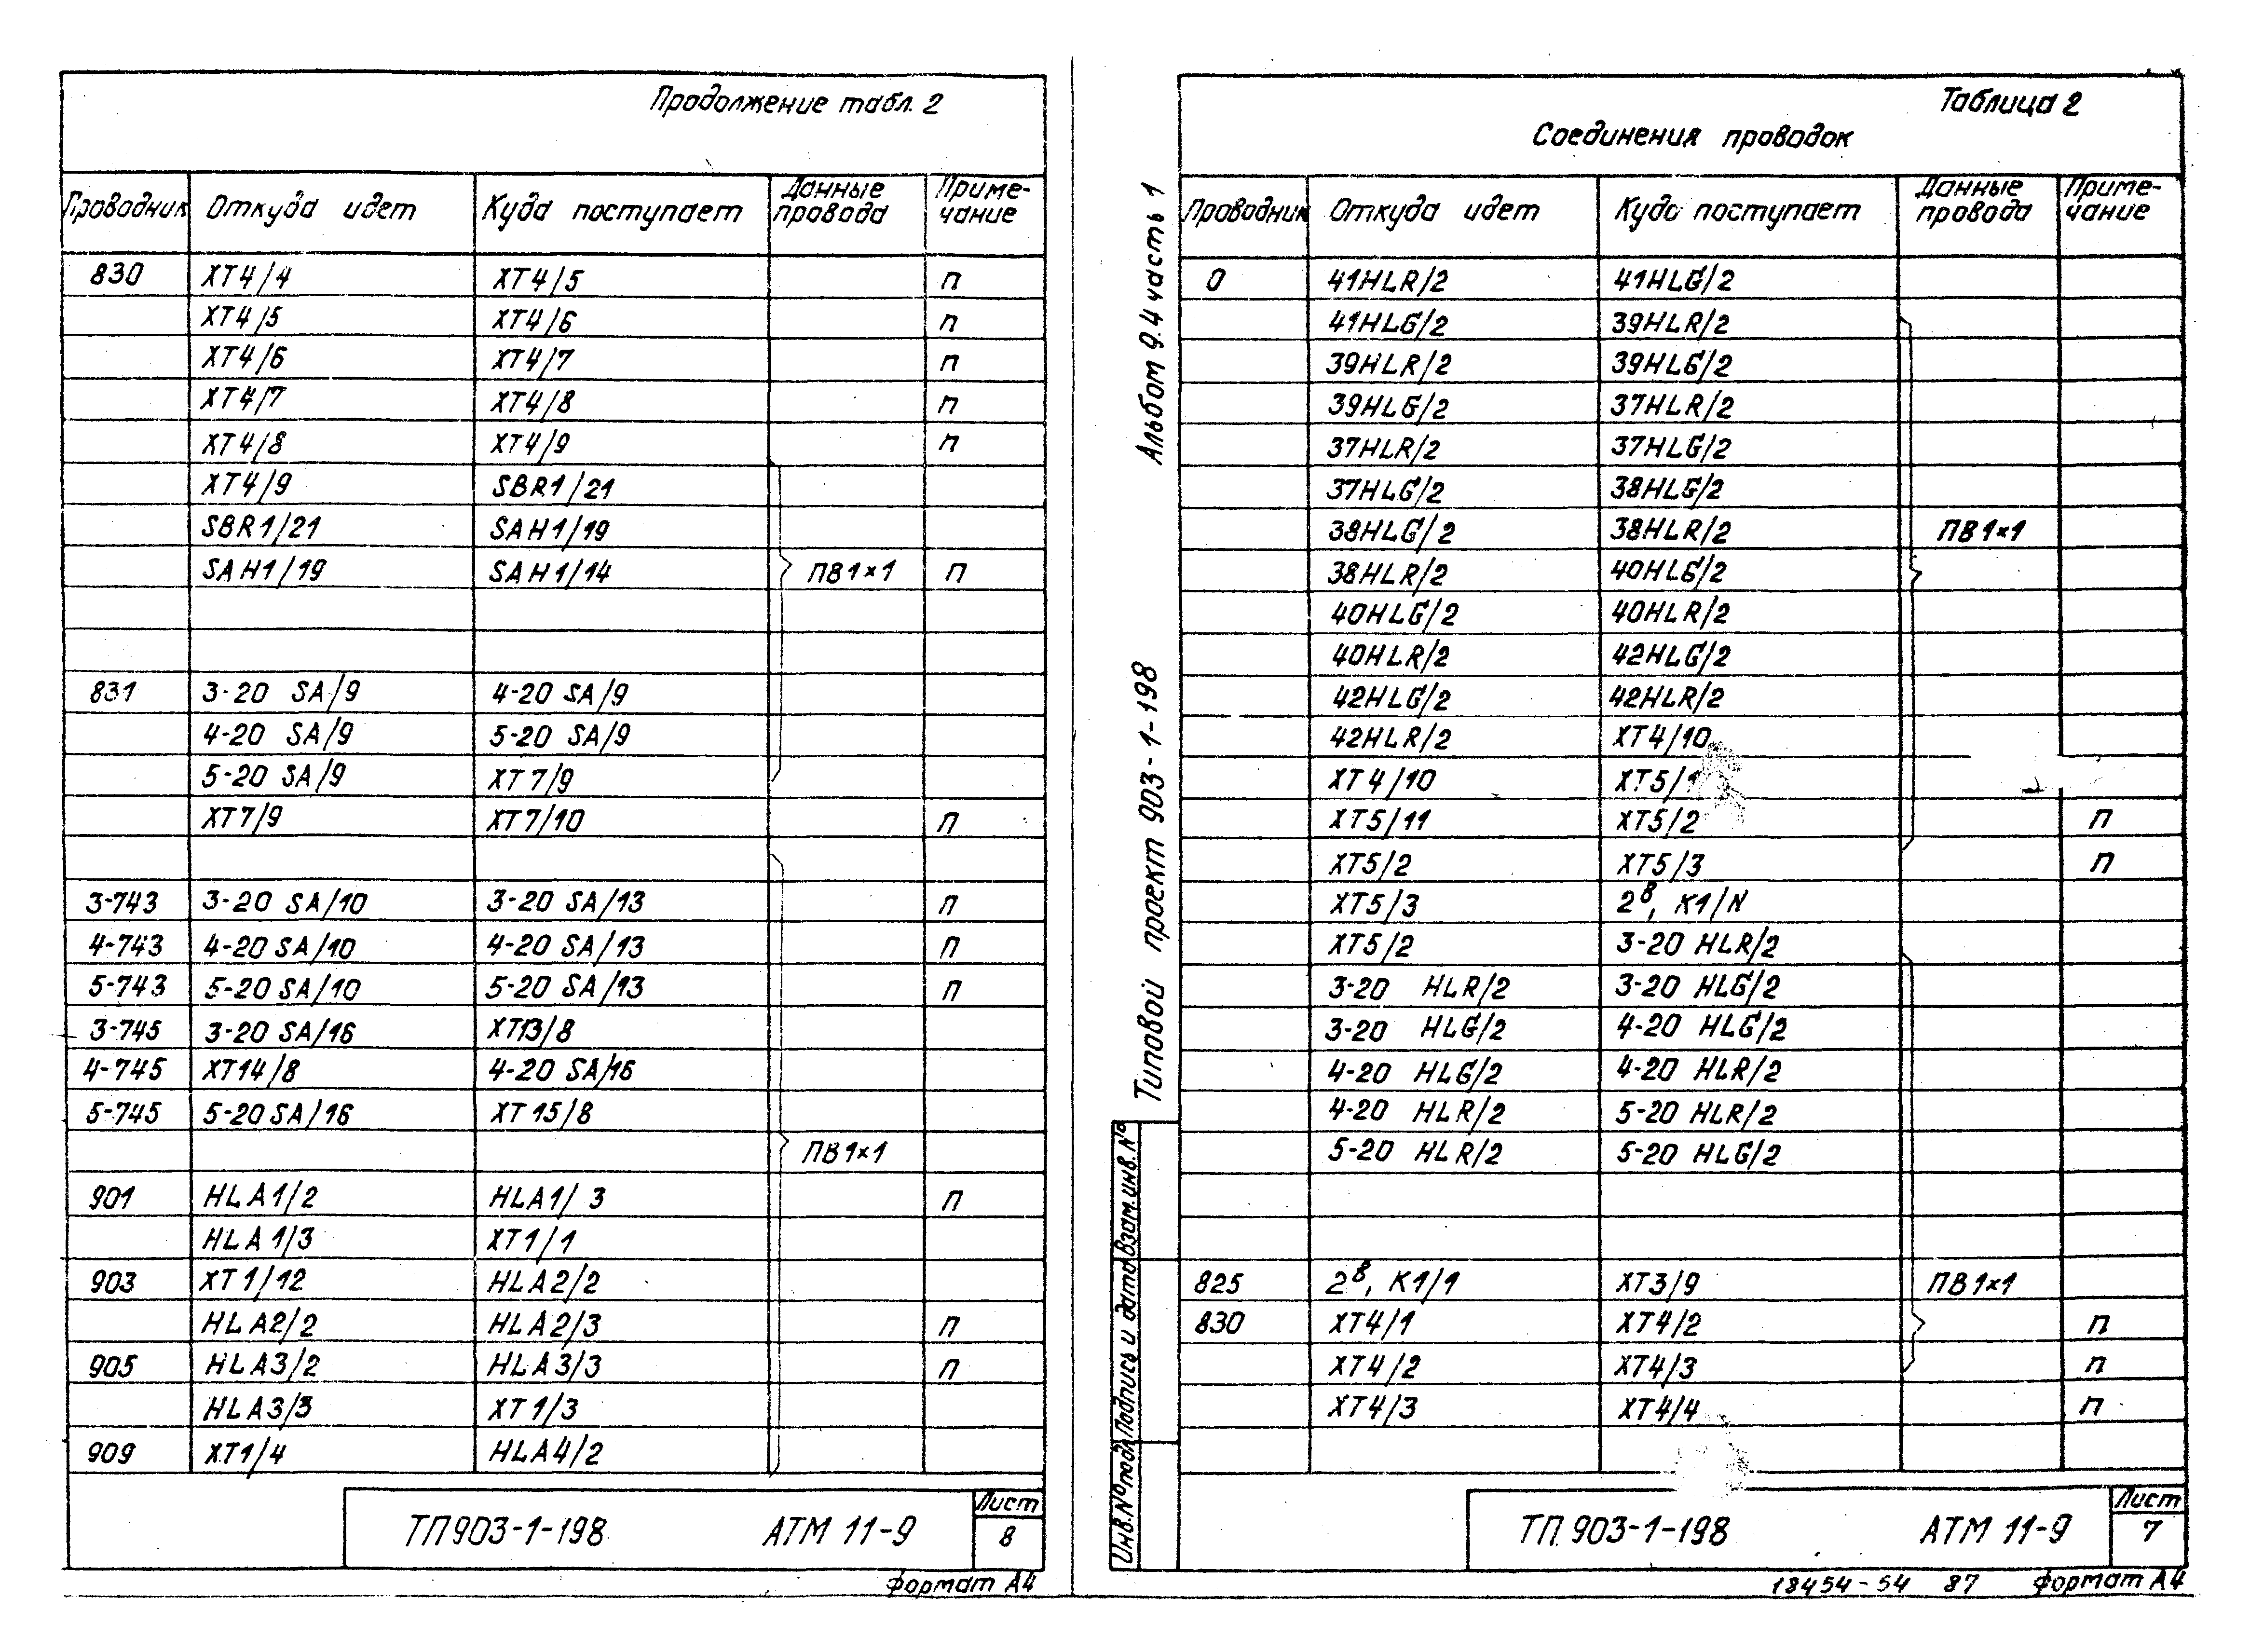 Продолжение табл. 2
Проводник Откуда идет Куда поступает Данные провода Приме-чание
830 XT4/4 XT4/5 п
XT4/5 XT4/6 п
XT4/6 XT4/7 п
XT4/7 XT4/8 п
XT4/8 XT4/9 п
XT4/9 SBR1/21
SBR1/21 SAH1/19
SAH1/19 SAH1/14 ПВ1×1 п
831 3-20 SA/9 4-20 SA/9
4-20 SA/9 5-20 SA/9
5-20 SA/9 XT7/9
XT7/9 XT7/10 п
3-743 3-20 SA/10 3-20 SA/13 п
4-743 4-20 SA/10 4-20 SA/13 п
5-743 5-20 SA/10 5-20 SA/13 п
3-745 3-20 SA/16 XT13/8
4-745 XT14/8 4-20 SA/16
5-745 5-20 SA/16 XT15/8
ПВ1×1
901 HLA1/2 HLA1/3 п
HLA1/3 XT1/1
903 XT1/12 HLA2/2
HLA2/2 HLA2/3 п
905 HLA3/2 HLA3/3 п
HLA3/3 XT1/3
909 XT1/4 HLA4/2
ТП903-1-198 АТМ 11-9 Лист 8
Формат А4
Типовой проект 903-1-198 Альбом 9.4 часть 1
Инв.№подл. Подпись и дата Взам.инв.№
Таблица 2
Соединения проводок
Проводник Откуда идет Куда поступает Данные провода Приме-чание
0 41HLR/2 41HLG/2
41HLG/2 39HLR/2
39HLR/2 39HLG/2
39HLG/2 37HLR/2
37HLR/2 37HLG/2
37HLG/2 38HLG/2
38HLG/2 38HLR/2 ПВ1×1
38HLR/2 40HLG/2
40HLG/2 40HLR/2
40HLR/2 42HLG/2
42HLG/2 42HLR/2
42HLR/2 XT4/10
XT4/10 XT5/1
XT5/11 XT5/2 п
XT5/2 XT5/3 п
XT5/3 2⁸, K1/N
XT5/2 3-20 HLR/2
3-20 HLR/2 3-20 HLG/2
3-20 HLG/2 4-20 HLG/2
4-20 HLG/2 4-20 HLR/2
4-20 HLR/2 5-20 HLR/2
5-20 HLR/2 5-20 HLG/2
825 2⁸, K1/1 XT3/9 ПВ1×1
830 XT4/1 XT4/2 п
XT4/2 XT4/3 п
XT4/3 XT4/4 п
ТП.903-1-198 АТМ 11-9 Лист 7
18454-54 87 Формат А4